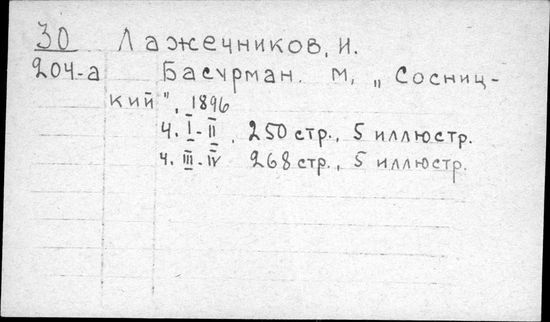 30 Лажечников, И.
204-а Басурман. М, „Сосниц-
кий", 1896
ч. I-II, 250 стр., 5 иллюстр.
ч. III-IV 268 стр., 5 иллюстр.